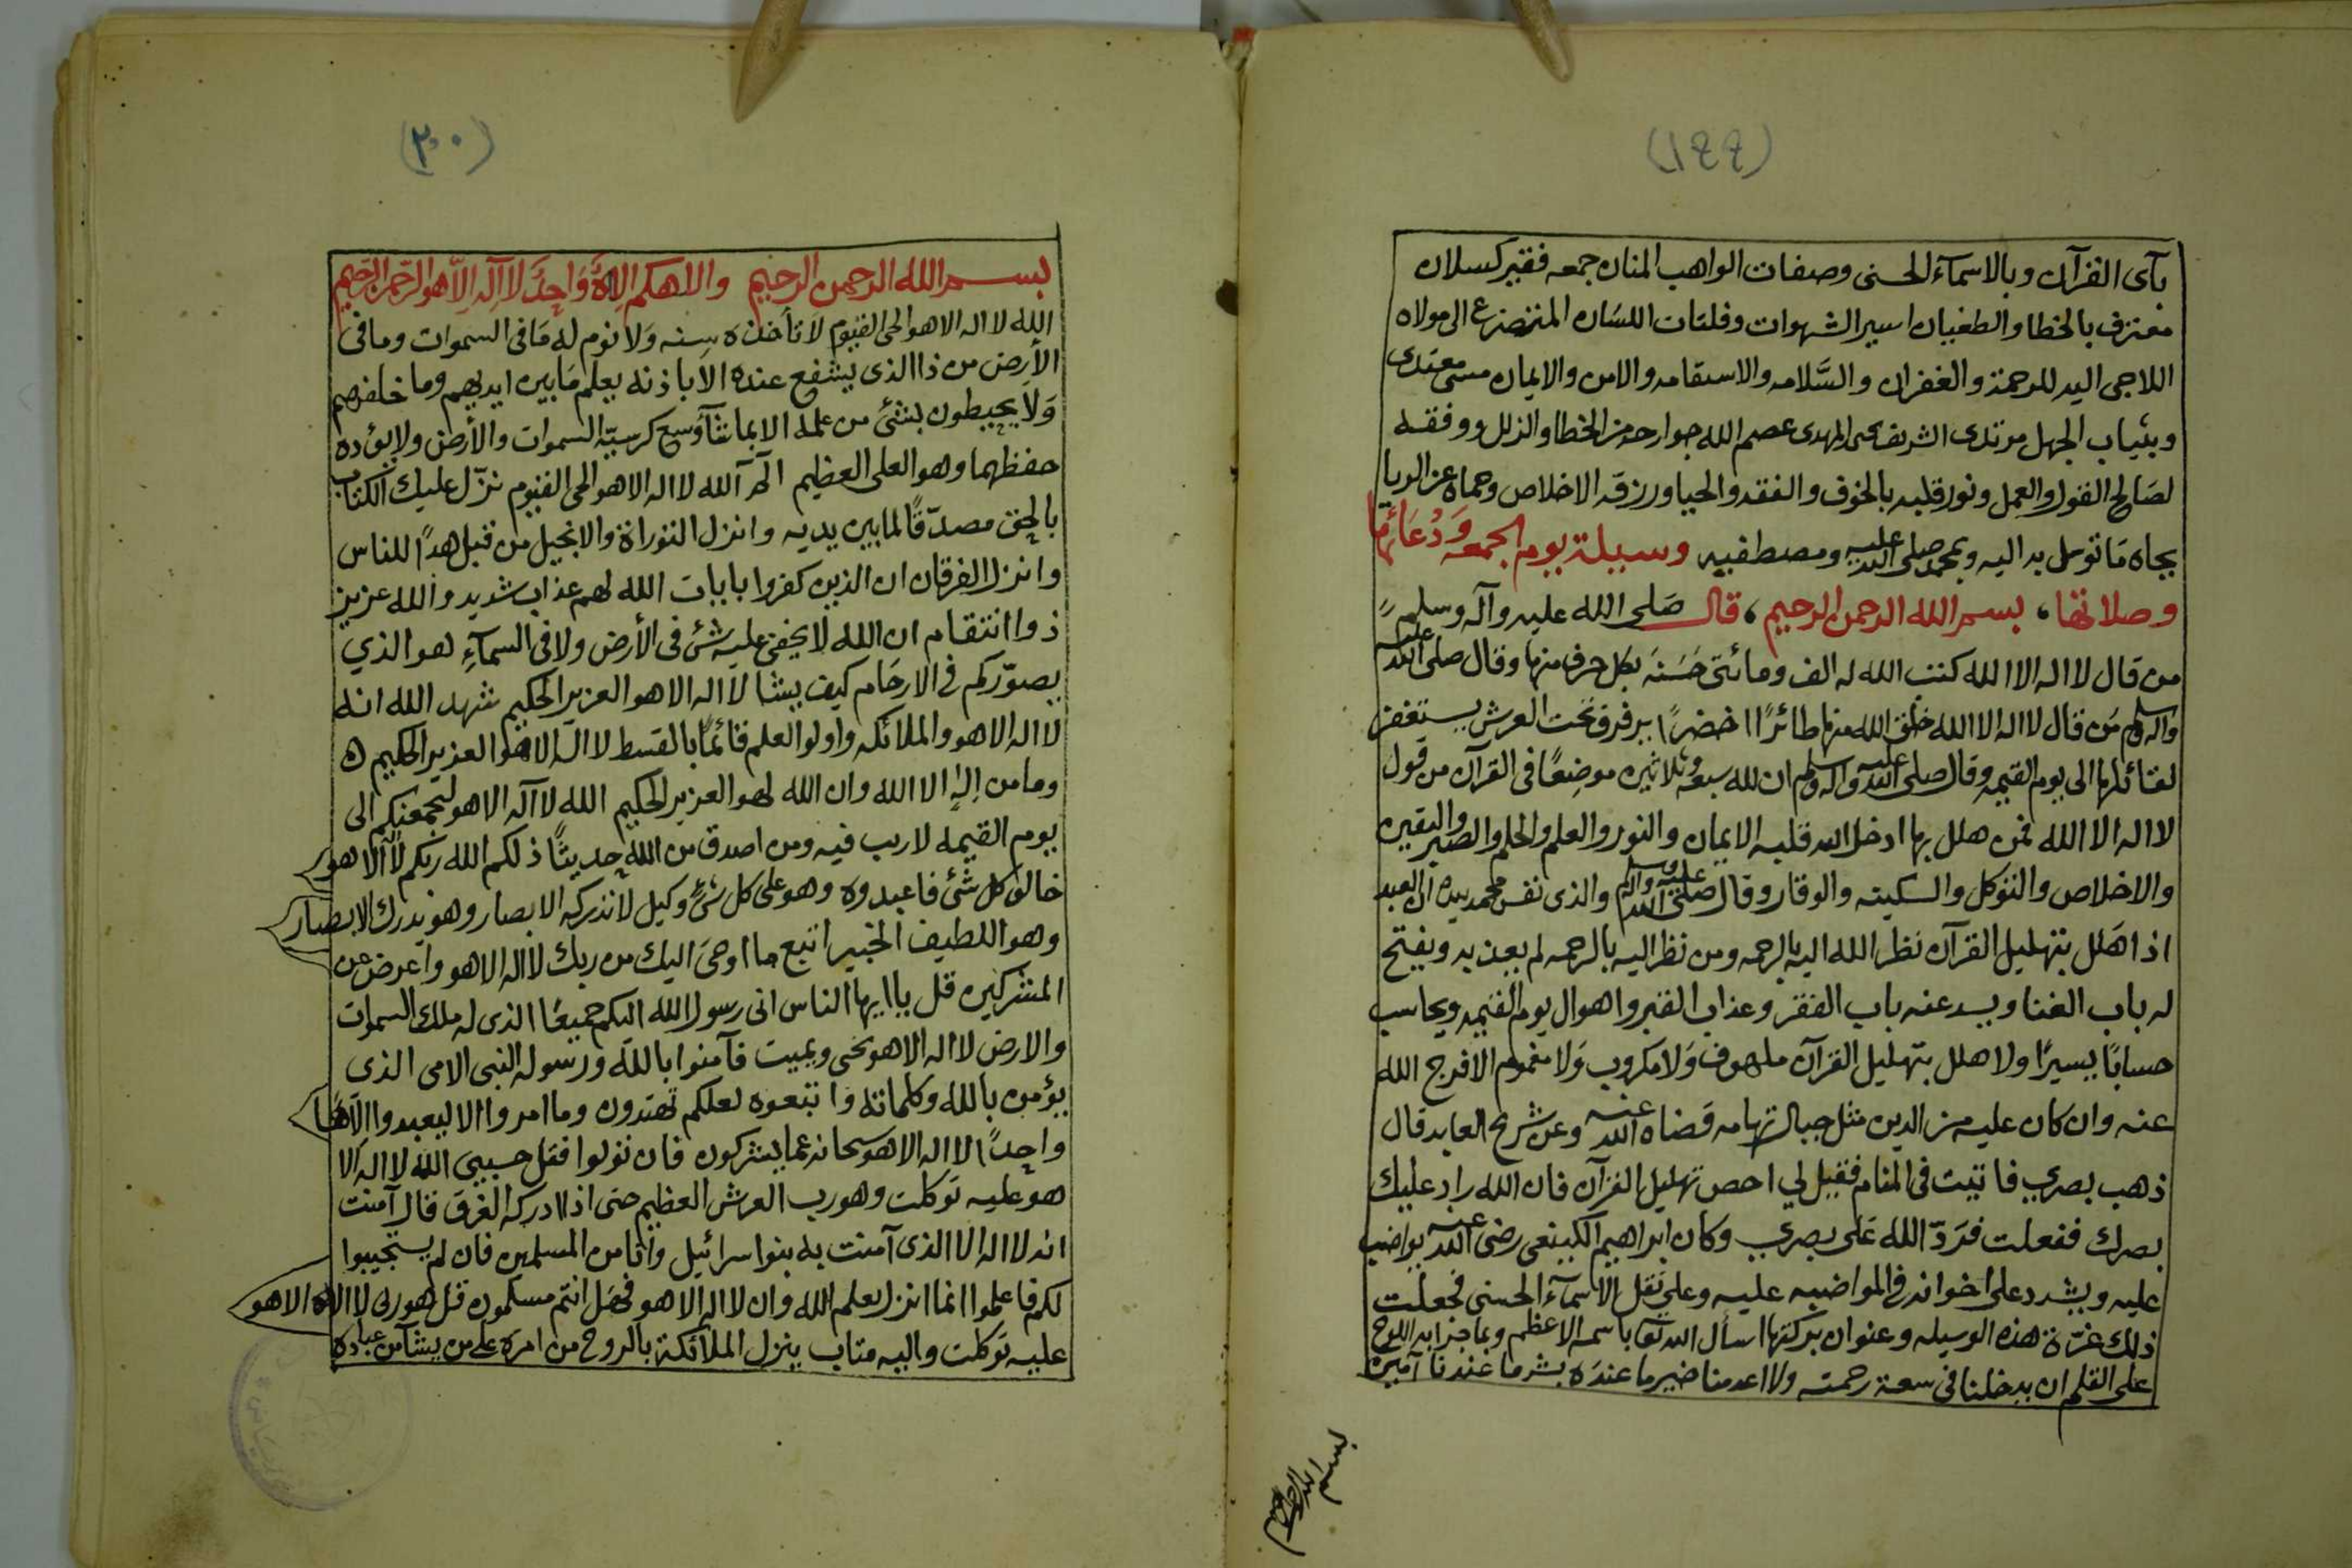 (١٩٩)
بآى القرآن وبالاسمآء الحسنى وصفات الواهب المنان جمعه فقير كسلان
معترف بالخطا والطغيان اسير الشهوات وفلتات اللسان المتضرع الى مولاه
اللاجى اليه للرحمة والغفران والسَّلامه والاستقامه والامن والايمان مسى معتدى
وبثياب الجهل مرتدى الشريف يحيى المهدى عصم الله جوارحه من الخطا والزلل ووفقه
لصَالح القول والعمل ونور قلبه بالخوف والفقه والحيا ورزقه الاخلاص وحماه عن الريا
بجاه مَا توسل به اليه وبمحمد صلى الله عليه ومصطفيه وسيلة يوم الجمعه وَدُعَائها
وصلاتها، بسم الله الرحمن الرحيم، قال صَلى الله عليه وآله وسلم
من قال لا اله الا الله كتب الله له الف ومائتى حَسَنَه بكل حرف منها وقال صلى الله عليه
واله وسلم مَن قال لا اله الا الله خلق الله منها طائرًا اخضرًا يرفرف تحت العرش يستغفر
لقائلها الى يوم القيمه وقال صلى الله عليه واله وسلم ان لله سبعه وثلاثين موضِعًا فى القرآن من قول
لا اله الا الله فمن هلل بها ادخل الله قلبه الايمان والنور والعلم والحلم والصبر واليقين
والاخلاص والتوكل والسكينه والوقار وقال صلى الله عليه واله وسلم والذى نفس محمد بيده ان العبد
اذا هَلل بتهليل القرآن نظر الله اليه بالرحمه ومن نظر اليه بالرحمه لم يعذبه ويفتح
له باب الغنا ويسد عنه باب الفقر وعذاب القبر واهوال يوم القيمه ويحاسب
حسابًا يسيرًا ولا هلل بتهليل القرآن ملهوف وَلا مكروب وَلا مغموم الا فرج الله
عنه وان كان عليه من الدين مثل جبال تهامه قضاه الله عنه وعن شريح العابد قال
ذهب بصري فاتيت فى المنام فقيل لي احص تهليل القرآن فان الله راد عليك
بصرك ففعلت فرَدّ الله عَلى بصري وكان ابراهيم الكينعى رضى الله عنه يواضب
عليه ويشدد على اخوانه في المواضبه عليه وعلى نقل الاسمآء الحسنى فجعلت
ذلك غرّة هذه الوسيله وعنوان بركتها اسأل الله تعا باسمه الاعظم وبما جرا به اللوح
على القلم ان يدخلنا فى سعة رحمته ولا اعدمنا خير ما عندَه بشر ما عندنا آمين
بسم الله الرحمن الرحيم
(٢٠٠)
بسم الله الرحمن الرحيم والاهكم الِاهٌ وَاحِدٌ لا اِلَه اِلاّ هو الرّحمن الرّحِيم
الله لا اله الا هو الحى القيوم لا تأخذه سِنه وَلا نوم له مَا فى السموات وما فى
الأرض من ذا الذى يشفع عنده الا باذنه يعلم مَا بين ايديهم وما خلفهم
وَلا يحيطون بشئ من علمه الا بما شآ وَسِع كرسيّه السموات والأرض ولا يؤده
حفظهما وهو العلى العظيم الم آلله لا اله الا هو الحى القيوم نزّل عليك الكتاب
بالحق مصدّقًا لما بين يديه وانزل التوراة والانجيل من قبل هدًا للناس
وانزل الفرقان ان الذين كفروا بايات الله لهم عذاب شديد والله عزيز
ذو انتقام ان الله لا يخفى عليه شئ فى الأرض ولا فى السمآءِ هو الذي
يصوّركم في الارحَام كيف يشا لا اله الا هو العزيز الحكيم شهد الله انه
لا اله الا هو والملائكه واولوا العلم قائمًا بالقسط لا اله الا هو العزيز الحكيم ه
وما من اِلهٍ الا الله وان الله لهو العزيز الحكيم الله لا آله الا هو ليجمعنكم الى
يوم القيمه لا ريب فيه ومن اصدق من الله حديثًا ذلكم الله ربكم لا اله الا هو
خالق كل شئ فاعبدوه وهو على كل شئ وكيل لا تدركه الابصار وهو يدرك الابصار
وهو اللطيف الخبير اتبع ما اوحىَ اليك من ربك لا اله الا هو واعرض عن
المشركين قل يا ايها الناس انى رسول الله اليكم جميعًا الذى له ملك السموات
والارض لا اله الا هو يحى ويميت فآمنوا بالله ورسوله النبى الامى الذى
يؤمن بالله وكلماته واتبعوه لعلكم تهتدون وما امروا الا ليعبدوا الاهًا
واحِدًا لا اله الا هو سبحانه عما يشركون فان تولوا فقل حسبيى الله لا اله الا
هو عليه تَوكلت وهو رب العرش العظيم حتى اذا ادركه الغرق قال آمنت
انه لا اله الا الذى آمنت به بنوا سرائيل وانا من المسلمين فان لم يستجيبوا
لكم فاعلموا انما انزل بعلم الله وان لا اله الا هو فهَل انتم مسلمون قل هو ربى لا اله الا هو
عليه توكلت واليه متاب ينزل الملائكة بالروح من امره على من يشآ من عباده